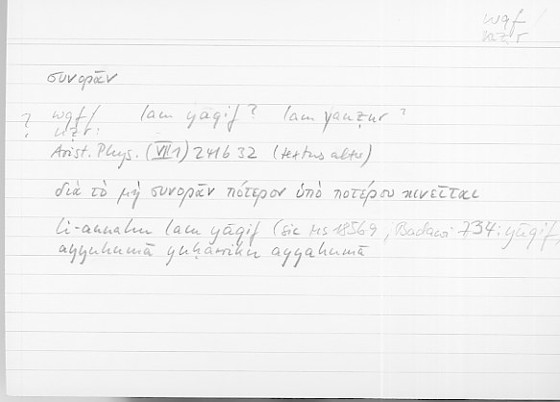 wqf /
nẓr
συνορᾶν
? wqf / lam yāqif ? lam yanẓur ?
? nẓr :
Arist. Phys. (VII 1) 241b32 (textus alter)
διὰ τὸ μὴ συνορᾶν πότερον ὑπὸ ποτέρου κινεῖται
li-annahu lam yāqif (sic Ms 18569, Badawi 734: yāqif,
ayyuhumā yuḥarriku ayyahumā